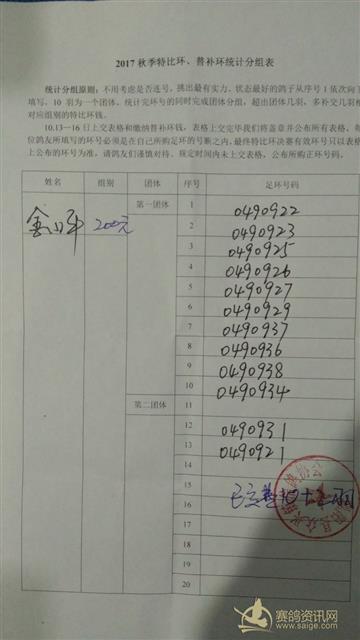 2017 秋季特比环、普补环统计分组表
统计分组原则：不用考虑是否连号，挑出最有实力、状态最好的鸽子从序号 1 依次向下
填写，10 羽为一个团体，统计完环号的同时完成团体分组，超出团体几羽，多补交几羽
对应组别的特比环钱。
10.13—16 日上交表格和缴纳普补环钱，表格上交完毕我们将盖章并公布所有表格，每
位鸽友所填写的环号必须是在自己所购足环的号断之内，最终特比环决赛有效环号只以表格
上公布的环号为准，请鸽友们谨慎对待。规定时间内未上交表格，公布所购正环号码。
姓名 组别 团体 序号 足环号码
200元
第一团体 1 0490922
2 0490923
3 0490925
4 0490926
5 0490927
6 0490929
7 0490937
8 0490936
9 0490938
10 0490934
第二团体 11
12 0490931
13 0490921
14
15
16
17
18
19
20
赛鸽资讯网
www.saige.com